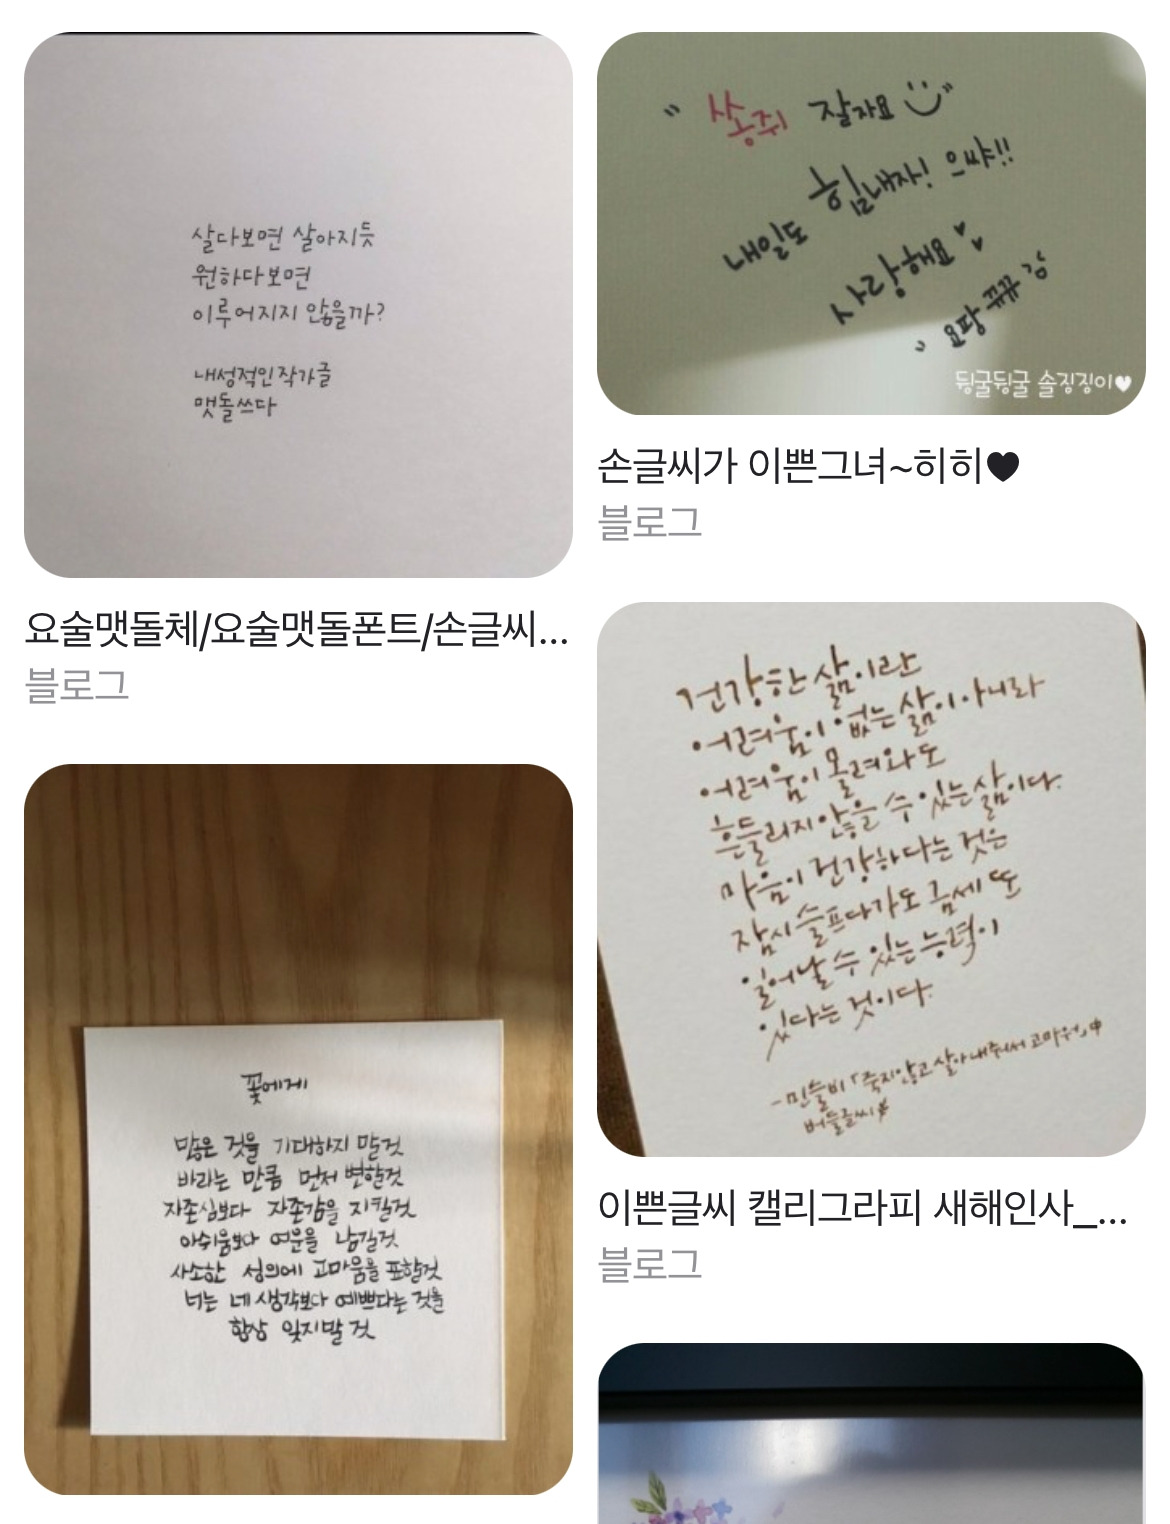 살다보면 살아지듯
원하다보면
이루어지지 않을까?
내성적인작가글
맷돌쓰다
요술맷돌체/요술맷돌폰트/손글씨...
블로그
꽃에게
많은 것을 기대하지 말것
바라는 만큼 먼저 변할것
자존심보다 자존감을 지킬것
아쉬움보다 여운을 남길것
사소한 성의에 고마움을 표할것
너는 네 생각보다 예쁘다는 것을
항상 잊지말 것
" 쏭쥐 잘자요 "
내일도 힘내자! 으쌰!!
사랑해요 ♥♥
뒹굴뒹굴 솔징징이♥
손글씨가 이쁜그녀~히히♥
블로그
건강한 삶이란
어려움이 없는 삶이 아니라
어려움이 몰려와도
흔들리지 않을 수 있는 삶이다.
마음이 건강하다는 것은
잠시 슬프다가도 금세 또
일어날 수 있는 능력이
있다는 것이다.
-민슬비 「죽지않고 살아내줘서 고마워」中
버들글씨
이쁜글씨 캘리그라피 새해인사_...
블로그